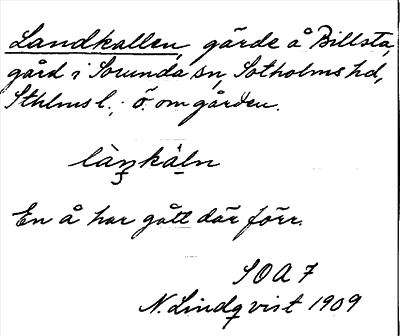 Landkallen, gärde å Billsta,
gård i Sorunda sn, Sotholms hd,
Sthlms l.; ö. om gården.
làŋkäln
En å har gått där förr.
SOA 7
N. Lindqvist 1909